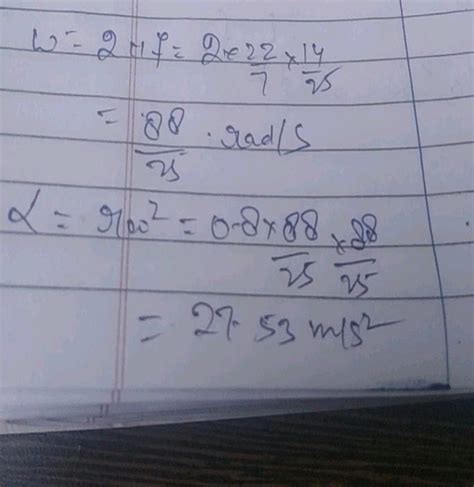 ω = 2πf = 2×22/7 × 14/25
= 88/25 . rad/s
α = rω² = 0.8×88/25 × 88/25
= 27.53 m/s²